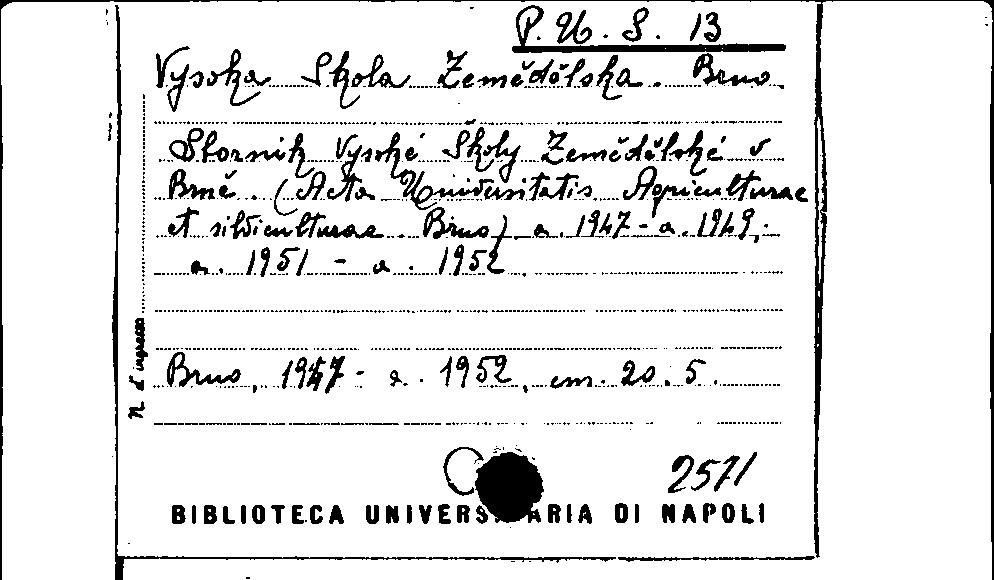 P. U. S. 13
Vysoka Skola Zemědělska. Brno.
Sbornik Vysoké Školy Zemědělské v
Brně. (Acta Universitatis Agriculturae
et silviculturae. Brno) a. 1947 - a. 1949;
a. 1951 - a. 1952.
Brno, 1947 - a. 1952, cm. 20.5.
N. d'ingresso
2571
BIBLIOTECA UNIVERSITARIA DI NAPOLI